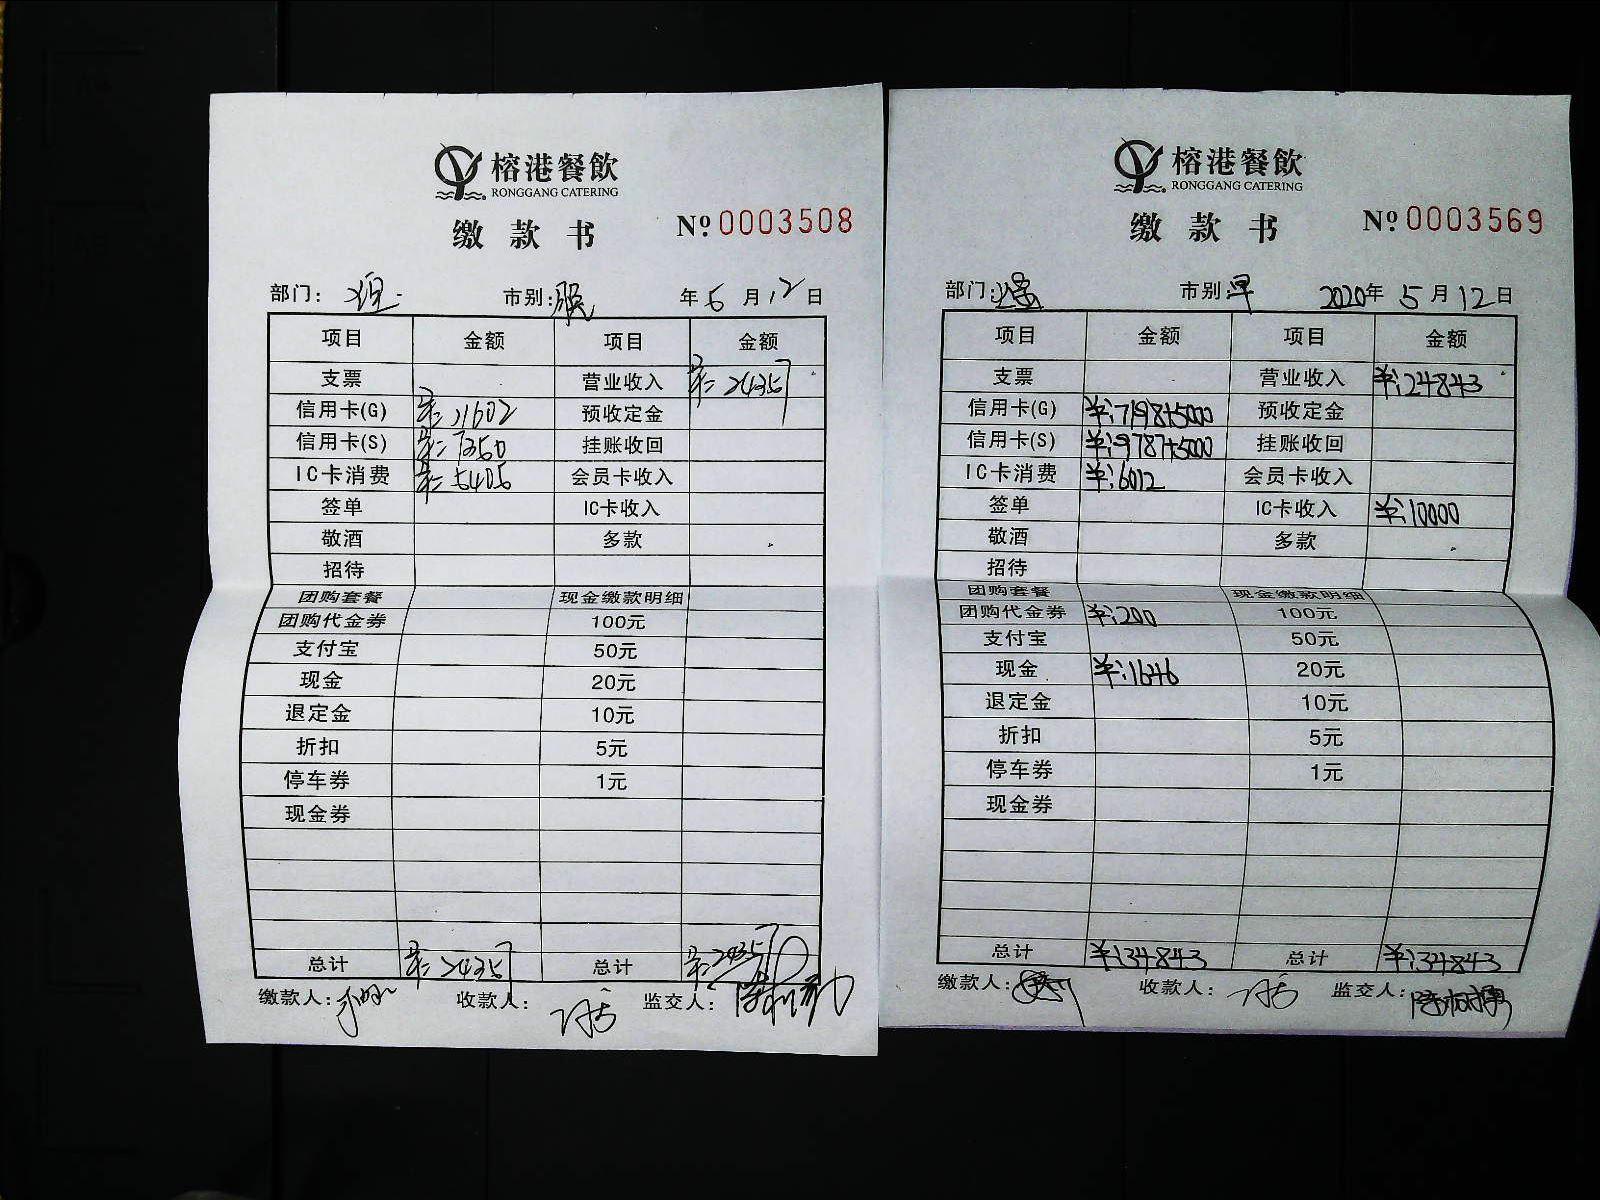 榕港餐飲
RONGGANG CATERING
缴款书 № 0003508
部门： 市别： 年 5 月 12 日
项目 金额 项目 金额
支票 营业收入 ¥:24357
信用卡(G) ¥:11602 预收定金
信用卡(S) ¥:7350 挂账收回
IC卡消费 ¥:5405 会员卡收入
签单 IC卡收入
敬酒 多款
招待
团购套餐 现金缴款明细
团购代金券 100元
支付宝 50元
现金 20元
退定金 10元
折扣 5元
停车券 1元
现金券
总计 ¥:24357 总计 ¥:24357
缴款人： 收款人： 监交人：
榕港餐飲
RONGGANG CATERING
缴款书 № 0003569
部门： 市别：早 2020年 5 月 12 日
项目 金额 项目 金额
支票 营业收入 ¥:24843
信用卡(G) ¥:7198+5000 预收定金
信用卡(S) ¥:9787+5000 挂账收回
IC卡消费 ¥:6012 会员卡收入
签单 IC卡收入 ¥:10000
敬酒 多款
招待
团购套餐 现金缴款明细
团购代金券 ¥:200 100元
支付宝 50元
现金 ¥:1646 20元
退定金 10元
折扣 5元
停车券 1元
现金券
总计 ¥:34843 总计 ¥:34843
缴款人： 收款人： 监交人：